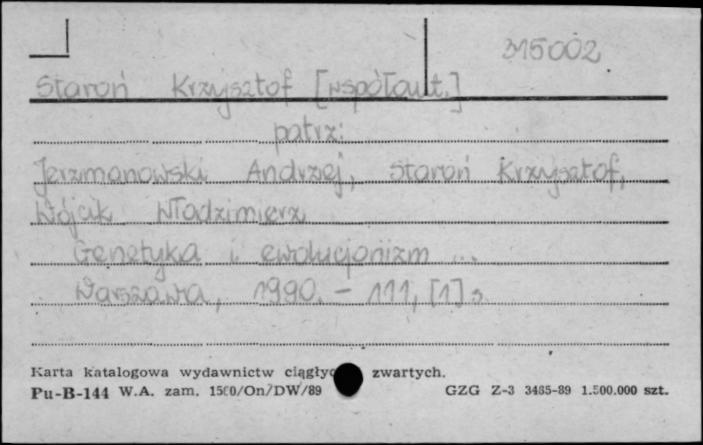 315002
Staroń Krzysztof [współaut.]
patrz:
Jerzmanowski Andrzej, Staroń Krzysztof,
Wójcik Włodzimierz
Genetyka i ewolucjonizm ...
Warszawa, 1990. - 111, [1] s
Karta katalogowa wydawnictw zwartych.
Pu-B-144 W.A. zam. 1500/On/DW/89 GZG Z-3 3485-89 1.500.000 szt.